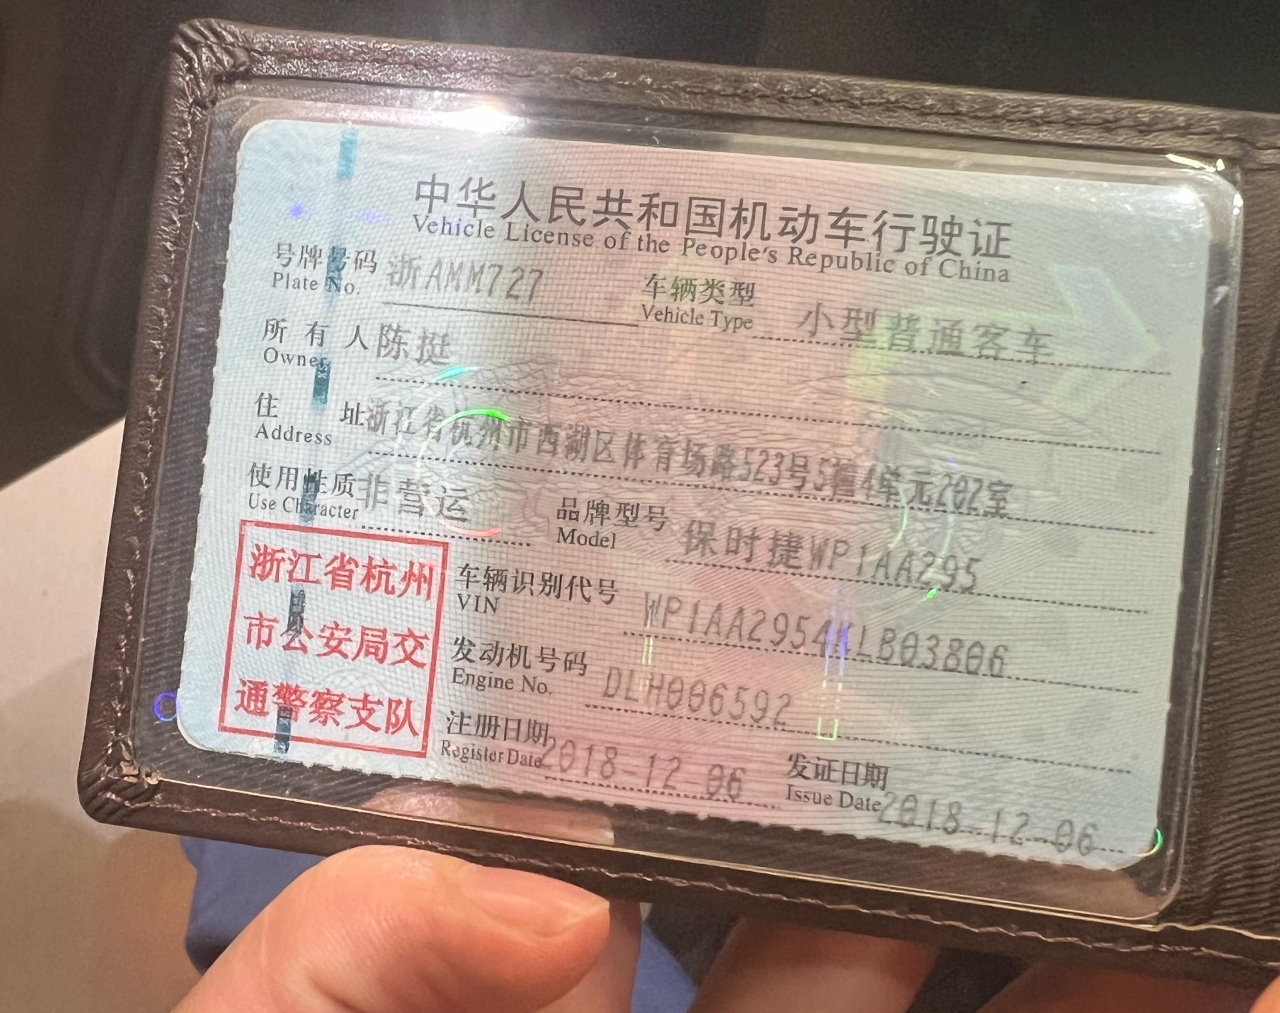 中华人民共和国机动车行驶证
Vehicle License of the People's Republic of China
号牌号码 浙AMM727 车辆类型 小型普通客车
Plate No. Vehicle Type
所有人 陈挺
Owner
住址 浙江省杭州市西湖区体育场路523号5幢4单元202室
Address
使用性质 非营运 品牌型号 保时捷WP1AA295
Use Character Model
浙江省杭州
市公安局交
通警察支队
车辆识别代号 WP1AA2954KLB03806
VIN
发动机号码 DLH006592
Engine No.
注册日期 2018-12-06 发证日期 2018-12-06
Register Date Issue Date